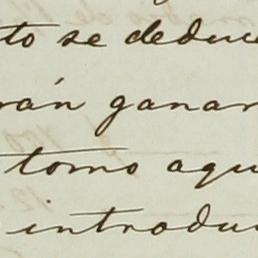 to se deduce
rán ganar
tomo aqu
introdu